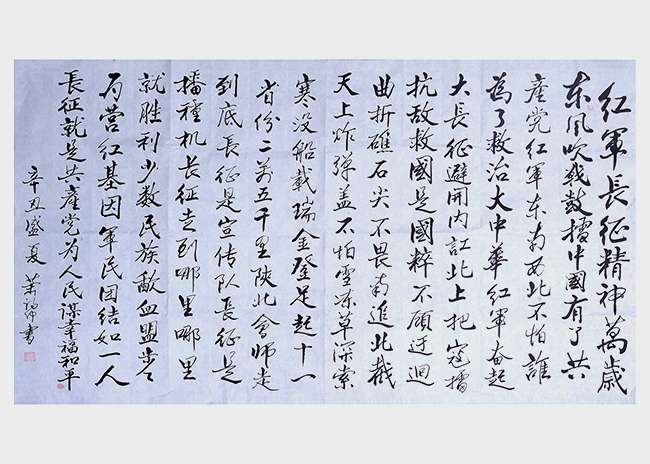 红軍長征精神萬歲
东风吹战鼓擂中國有了共
産党红軍东南西北不怕誰
為了救治大中華红軍奋起
大長征避開内訌北上把寇擂
抗敌救國是國粹不顾迂迴
曲折礁石尖不畏南進北截
天上炸弹盖不怕雪冻草深索
寒没船載瑞金登足起十一
省份二萬五千里陕北會师走
到底長征是宣传队長征是
播種机长征走到哪里哪里
就胜利少数民族歃血盟步々
为营红基因軍民团结如一人
長征就是共産党为人民謀幸福和平
辛丑盛夏 萧 書